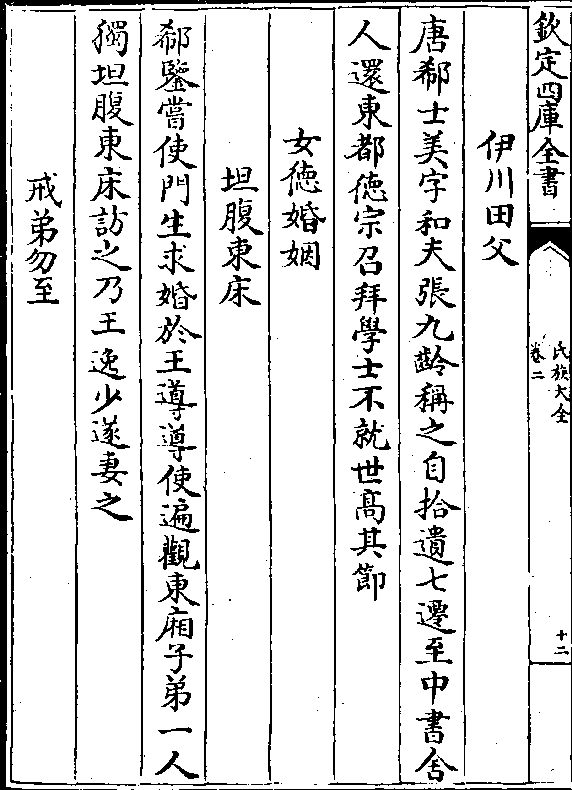 欽定四庫全書
氏族大全
卷二
十二
伊川田父
唐郗士美字和夫張九齡稱之自拾遺七遷至中書舍
人還東都徳宗召拜學士不就世高其節
女徳婚姻
坦腹東床
郗鑒嘗使門生求婚於王導導使遍觀東廂子弟一人
獨坦腹東床訪之乃王逸少遂妻之
戒弟勿至